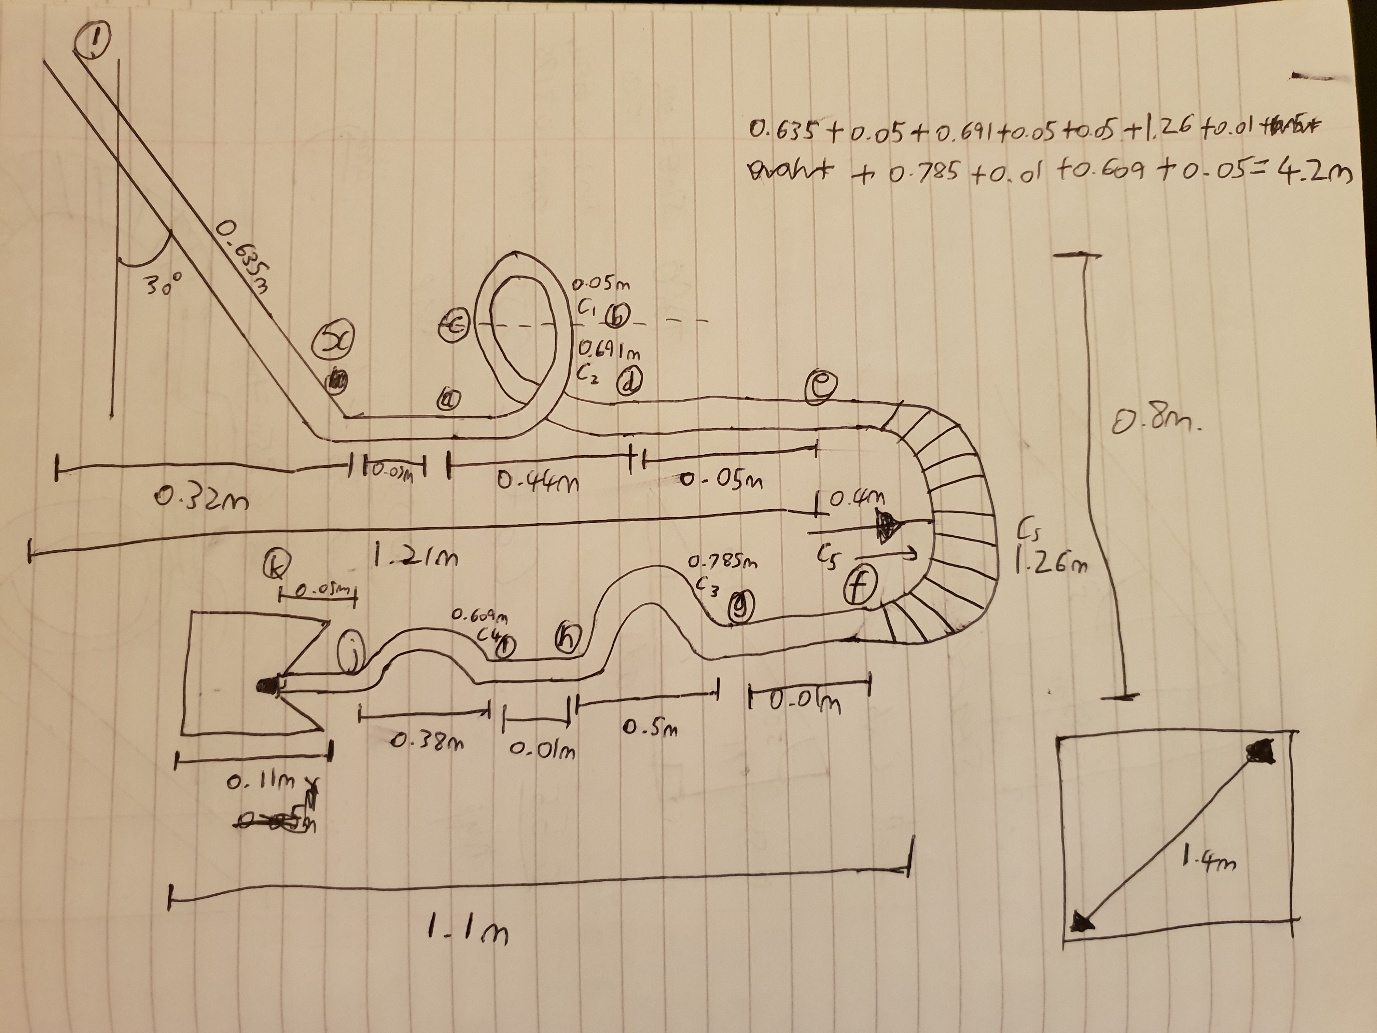 1
0.635 + 0.05 + 0.691 + 0.05 + 0.05 + 1.26 + 0.01 +
+ 0.785 + 0.01 + 0.609 + 0.05 = 4.2m
0.635m
30°
x
a
c
0.05m
C1 b
0.691m
C2 d
e
0.8m.
0.32m
0.05m
0.44m
0.05m
0.4m
C5
1.21m
C5
1.26m
f
k
0.05m
0.785m
C3 g
0.609m
C4 i
h
j
0.01m
0.5m
0.38m
0.01m
0.11m
1.4m
1.1m